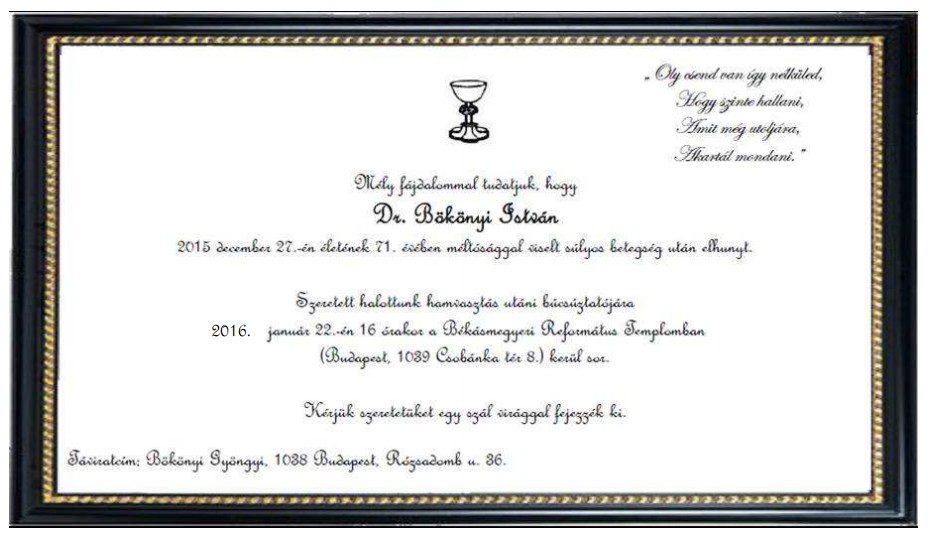 „ Oly csend van így nélküled,
Hogy szinte hallani,
Amit még utoljára,
Akartál mondani. "
Mély fájdalommal tudatjuk, hogy
Dr. Bökönyi István
2015 december 27.-én életének 71. évében méltósággal viselt súlyos betegség után elhunyt.
Szeretett halottunk hamvasztás utáni búcsúztatójára
2016. január 22.-én 16 órakor a Békásmegyeri Református Templomban
(Budapest, 1039 Csobánka tér 8.) kerül sor.
Kérjük szeretetüket egy szál virággal fejezzék ki.
Táviratcím: Bökönyi Gyöngyi, 1038 Budapest, Rózsadomb u. 36.